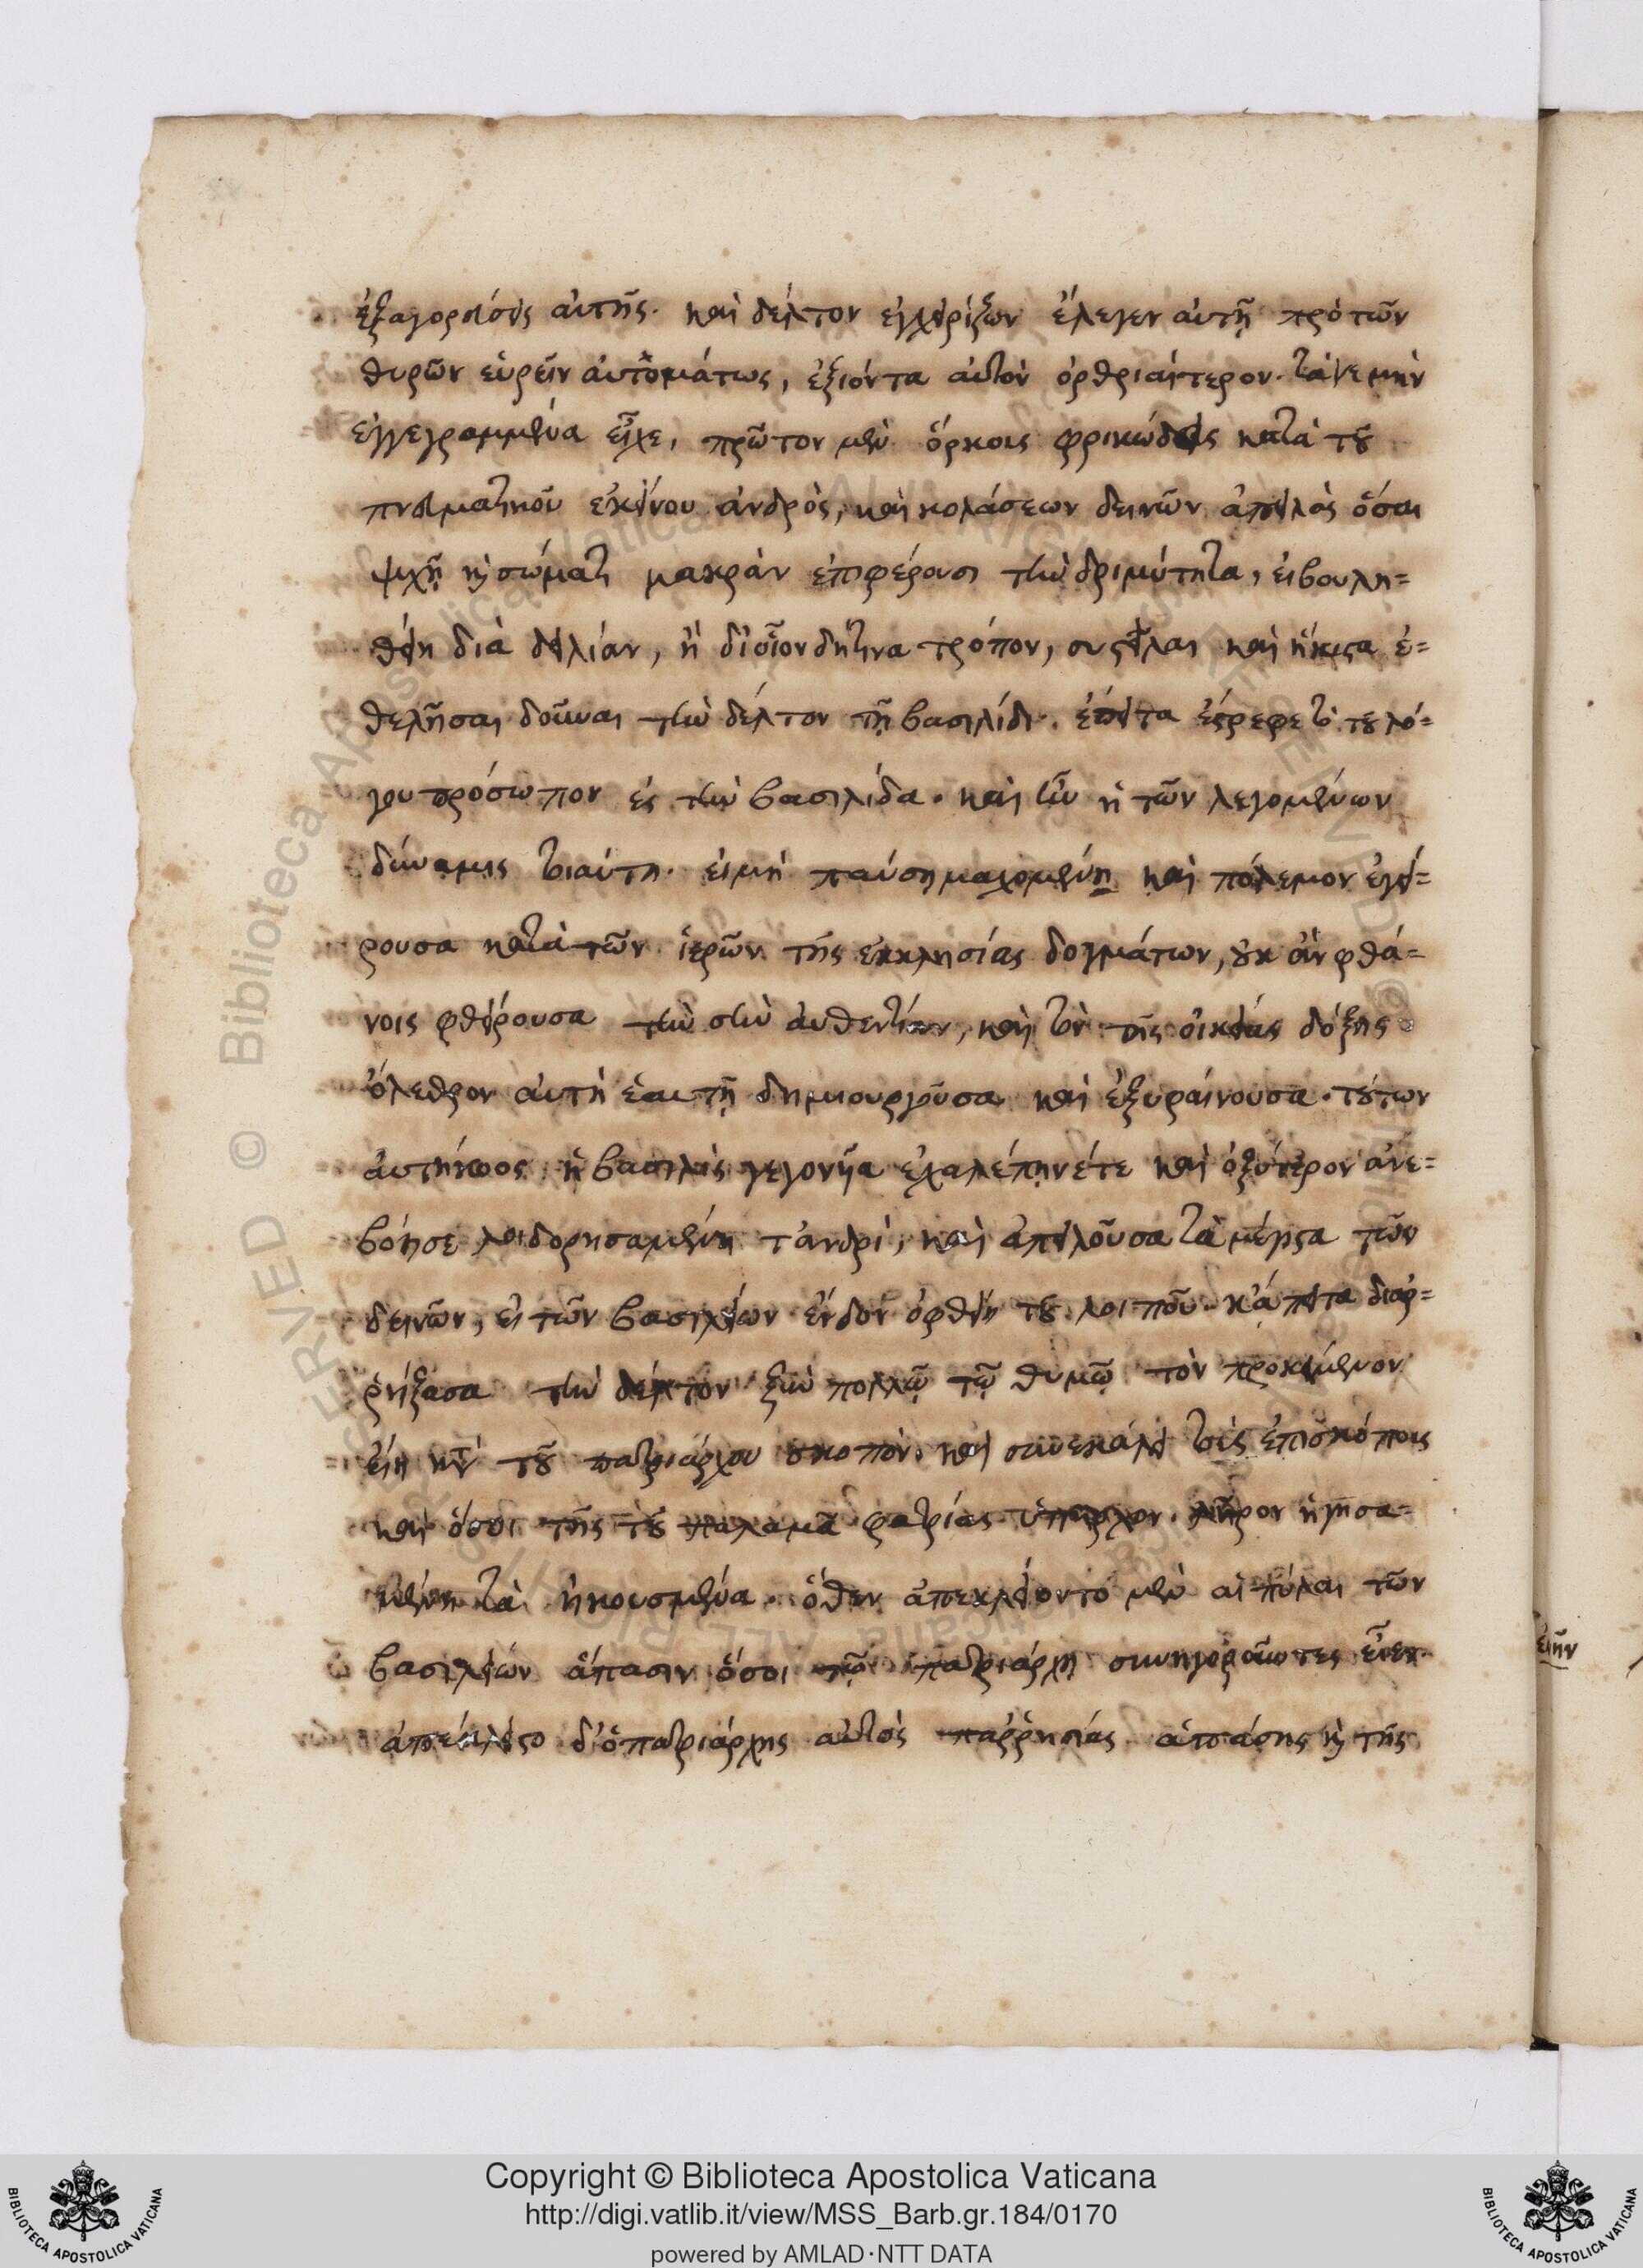 ἐξαγορεύσεις αὐτῆς. καὶ δέλτον ἐγχειρίζων ἔλεγεν αὐτῇ πρὸ τῶν
θυρῶν εὑρεῖν αὐτομάτως, ἐξιόντα αὐτὸν ὀρθριαίτερον. τά γε μὴν
ἐγγεγραμμένα εἶχε, πρῶτον μὲν ὅρκοις φρικώδεις κατὰ τοῦ
πνευματικοῦ ἐκείνου ἀνδρὸς, καὶ κολάσεων δεινῶν ἀπειλὰς ὅσαι
ψυχῇ καὶ σώματι μακρὰν ἐπιφέρουσι τὴν δριμύτητα, εἰ βουλη=
θείη διὰ δειλίαν, ἢ δι' οἷον δήτινα τρόπον, συστεῖλαι καὶ ἥκιστα ἐ=
θελῆσαι δοῦναι τὴν δέλτον τῇ βασιλίδι. ἔπειτα ἔστρεφε τὸ τοῦ λό=
γου πρόσωπον ἐς τὴν βασιλίδα. καὶ ἦν ἡ τῶν λεγομένων
δύναμις τοιαύτη. εἰ μὴ παύσῃ μαχομένη καὶ πόλεμον ἐγεί=
ρουσα κατὰ τῶν ἱερῶν τῆς ἐκκλησίας δογμάτων, οὐκ ἂν φθά=
νοις φθείρουσα τὴν σὴν αὐθεντίαν, καὶ τὸν τῆς οἰκείας δόξης
ὄλεθρον αὐτὴ ἑαυτῇ δημιουργοῦσα καὶ ἐξυφαίνουσα. τούτων
αὐτήκοος ἡ βασιλὶς γεγονυῖα ἐχαλέπηνέ τε καὶ ὀξύτερον ἀνε=
βόησε λοιδορησαμένη τἀνδρὶ, καὶ ἀπειλοῦσα τὰ μέγιστα τῶν
δεινῶν, εἰ τῶν βασιλείων ἔνδον ὀφθείη τοῦ λοιποῦ. κἄπειτα διαρ=
ῥήξασα τὴν δέλτον ξὺν πολλῷ τῷ θυμῷ τὸν προκείμενον
εἴη κατὰ τοῦ πατριάρχου σκοπὸν. καὶ συνεκάλει τοὺς ἐπισκόπους
καὶ ὅσοι τῆς τοῦ παλαμᾶ φατρίας ὑπῆρχον. λῆρον ἡγησα=
μένη τὰ ἠκουσμένα. ὅθεν ἀπεκλείοντο μὲν αἱ πύλαι τῶν
βασιλείων ἅπασιν ὅσοι τῷ πατριάρχῃ συνηγοροῦντες
δ' ὁ πατριάρχης αὐτὸς παῤῥησίας ἁπάσης καὶ τῆς
Copyright © Biblioteca Apostolica Vaticana
http://digi.vatlib.it/view/MSS_Barb.gr.184/0170
powered by AMLAD·NTT DATA